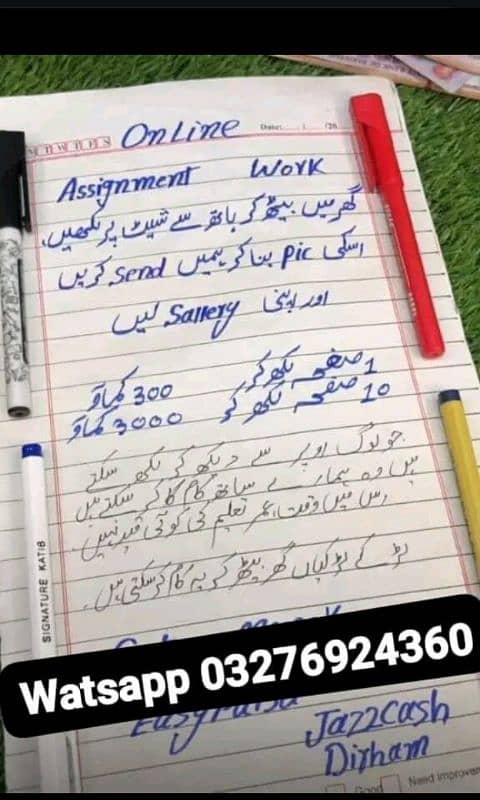 M T W T F S
Date: / /20
Online
Assignment Work
گھر میں بیٹھ کر ہاتھ سے شیٹ پر لکھیں،
اسکی pic بنا کر ہمیں Send کریں
اور اپنی Sallery لیں
1 صفحہ لکھ کر 300 کماؤ
10 صفحہ لکھ کر 3000 کماؤ
جو لوگ اوپر سے دیکھ کر لکھ سکتے
ہیں وہ ہمارے ساتھ کام کر سکتے ہیں
اس میں وقت، عمر تعلیم کی کوئی قید نہیں۔
لڑکے لڑکیاں گھر بیٹھ کر یہ کام کر سکتی ہیں۔
Watsapp 03276924360
EasyPaisa JazzCash
Dirham
Good Need improvem
SIGNATURE KATIB